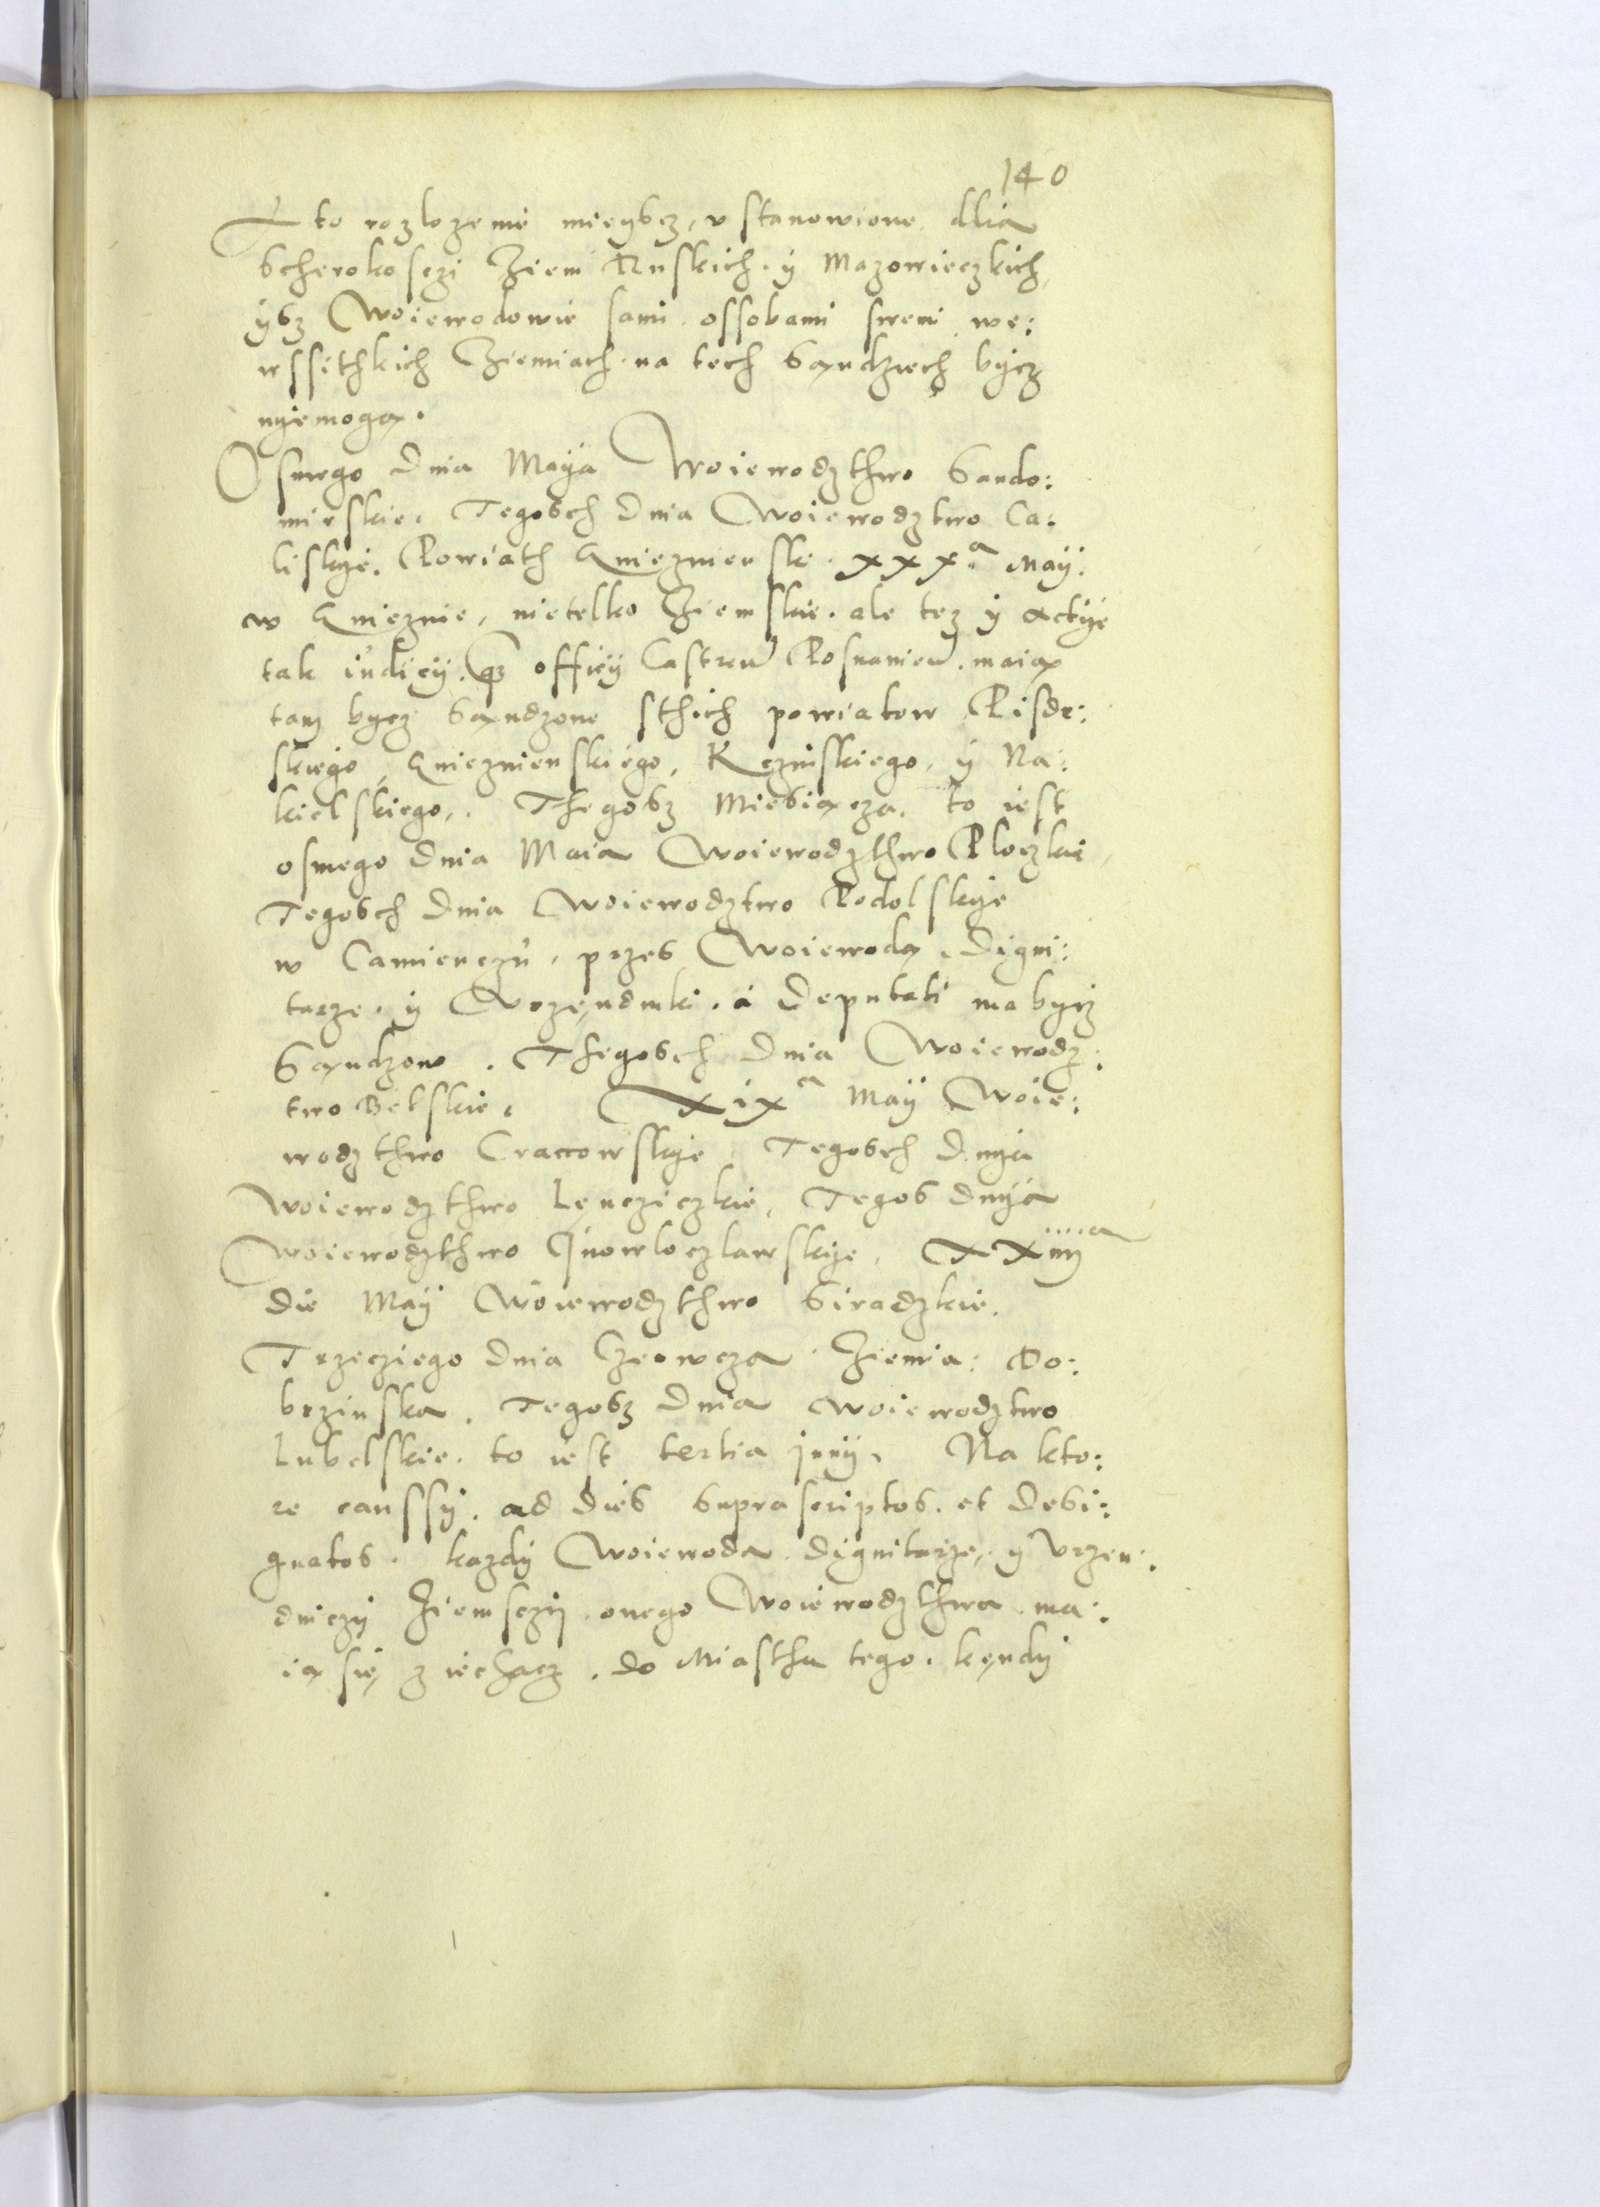 140
A to rozlozenie mieysz, vstanowione dlia
scherokosczi Ziem Ruskich. y Mazowieczkich,
ysz Woiewodowie sami ossobami swemi we:
wssithkich Ziemiach. na tech sądziech bycz
nyemogą.
Osmego Dnia Maya Woiewodzthwo Sando:
mirskie. Tegosch Dnia Woiewodztwo Ca:
liskye. Powiath Gnieznienski. xxx.a May.
w Gnieznie, nietelko Ziemskie. ale tez y actye
tak iudicij. offitij Castren Posnanien. maią
tam bycz sąndzone sthich powiatow Pisdr:
skiego, Gnieznienskiego, Kczniskiego, y Na:
kielskiego. Thegosz Miesiącza. to iest
osmego Dnia Maia Woiewodzthwo Ploczkie,
Tegosch Dnia Woiewodztwo Podolskye
w Camienczu, przes Woiewodą, Digni:
tarze. y Vrzędniki. a Deputati ma bycz
sąndzono. Thegosch Dnia Woiewodz:
two Belskie. Xixa May Woie:
wodzthwo Cracowskye. Tegosch Dnya
Woiewodzthwo Lęnczieczkie, Tegos dnya
Woiewodzthwo Jnowloczlawskye, XXiiija
die May Woiewodzthwo Siradzkie.
Trzecziego Dnia Czerwcza. Ziemia: Do:
brzinska. Tegosz Dnia Woiewodztwo
Lubelskie. to iest tertia junij. Na kto:
re caussy. ad dies suprascriptos. et Desi:
gnatos. kazdy Woiewoda. dignitarze, y Vrzen:
dniczy Ziemsczy. onego Woiewodzthwa. ma:
ią się ziechacz. do Miastha tego. kędy